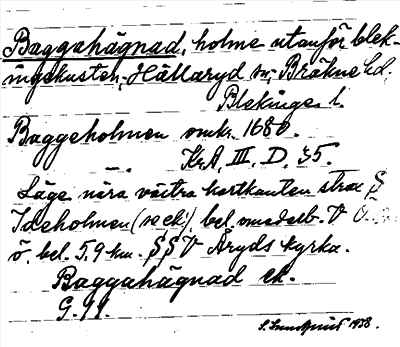 Baggahägnad, holme utanför blek-
ingekusten, Hällaryd sn, Bräkne hd,
Blekinge l.
Baggeholmen omkr. 1680.
KrA, III. D. 35.
Läge nära västra kartkanten strax S
Ideholmen (se ek), bel. omedelb. V
ö bel. 5,9 km. SSV Åryds kyrka.
Baggahägnad ek.
G. 91.
S. Sundquist 1938.